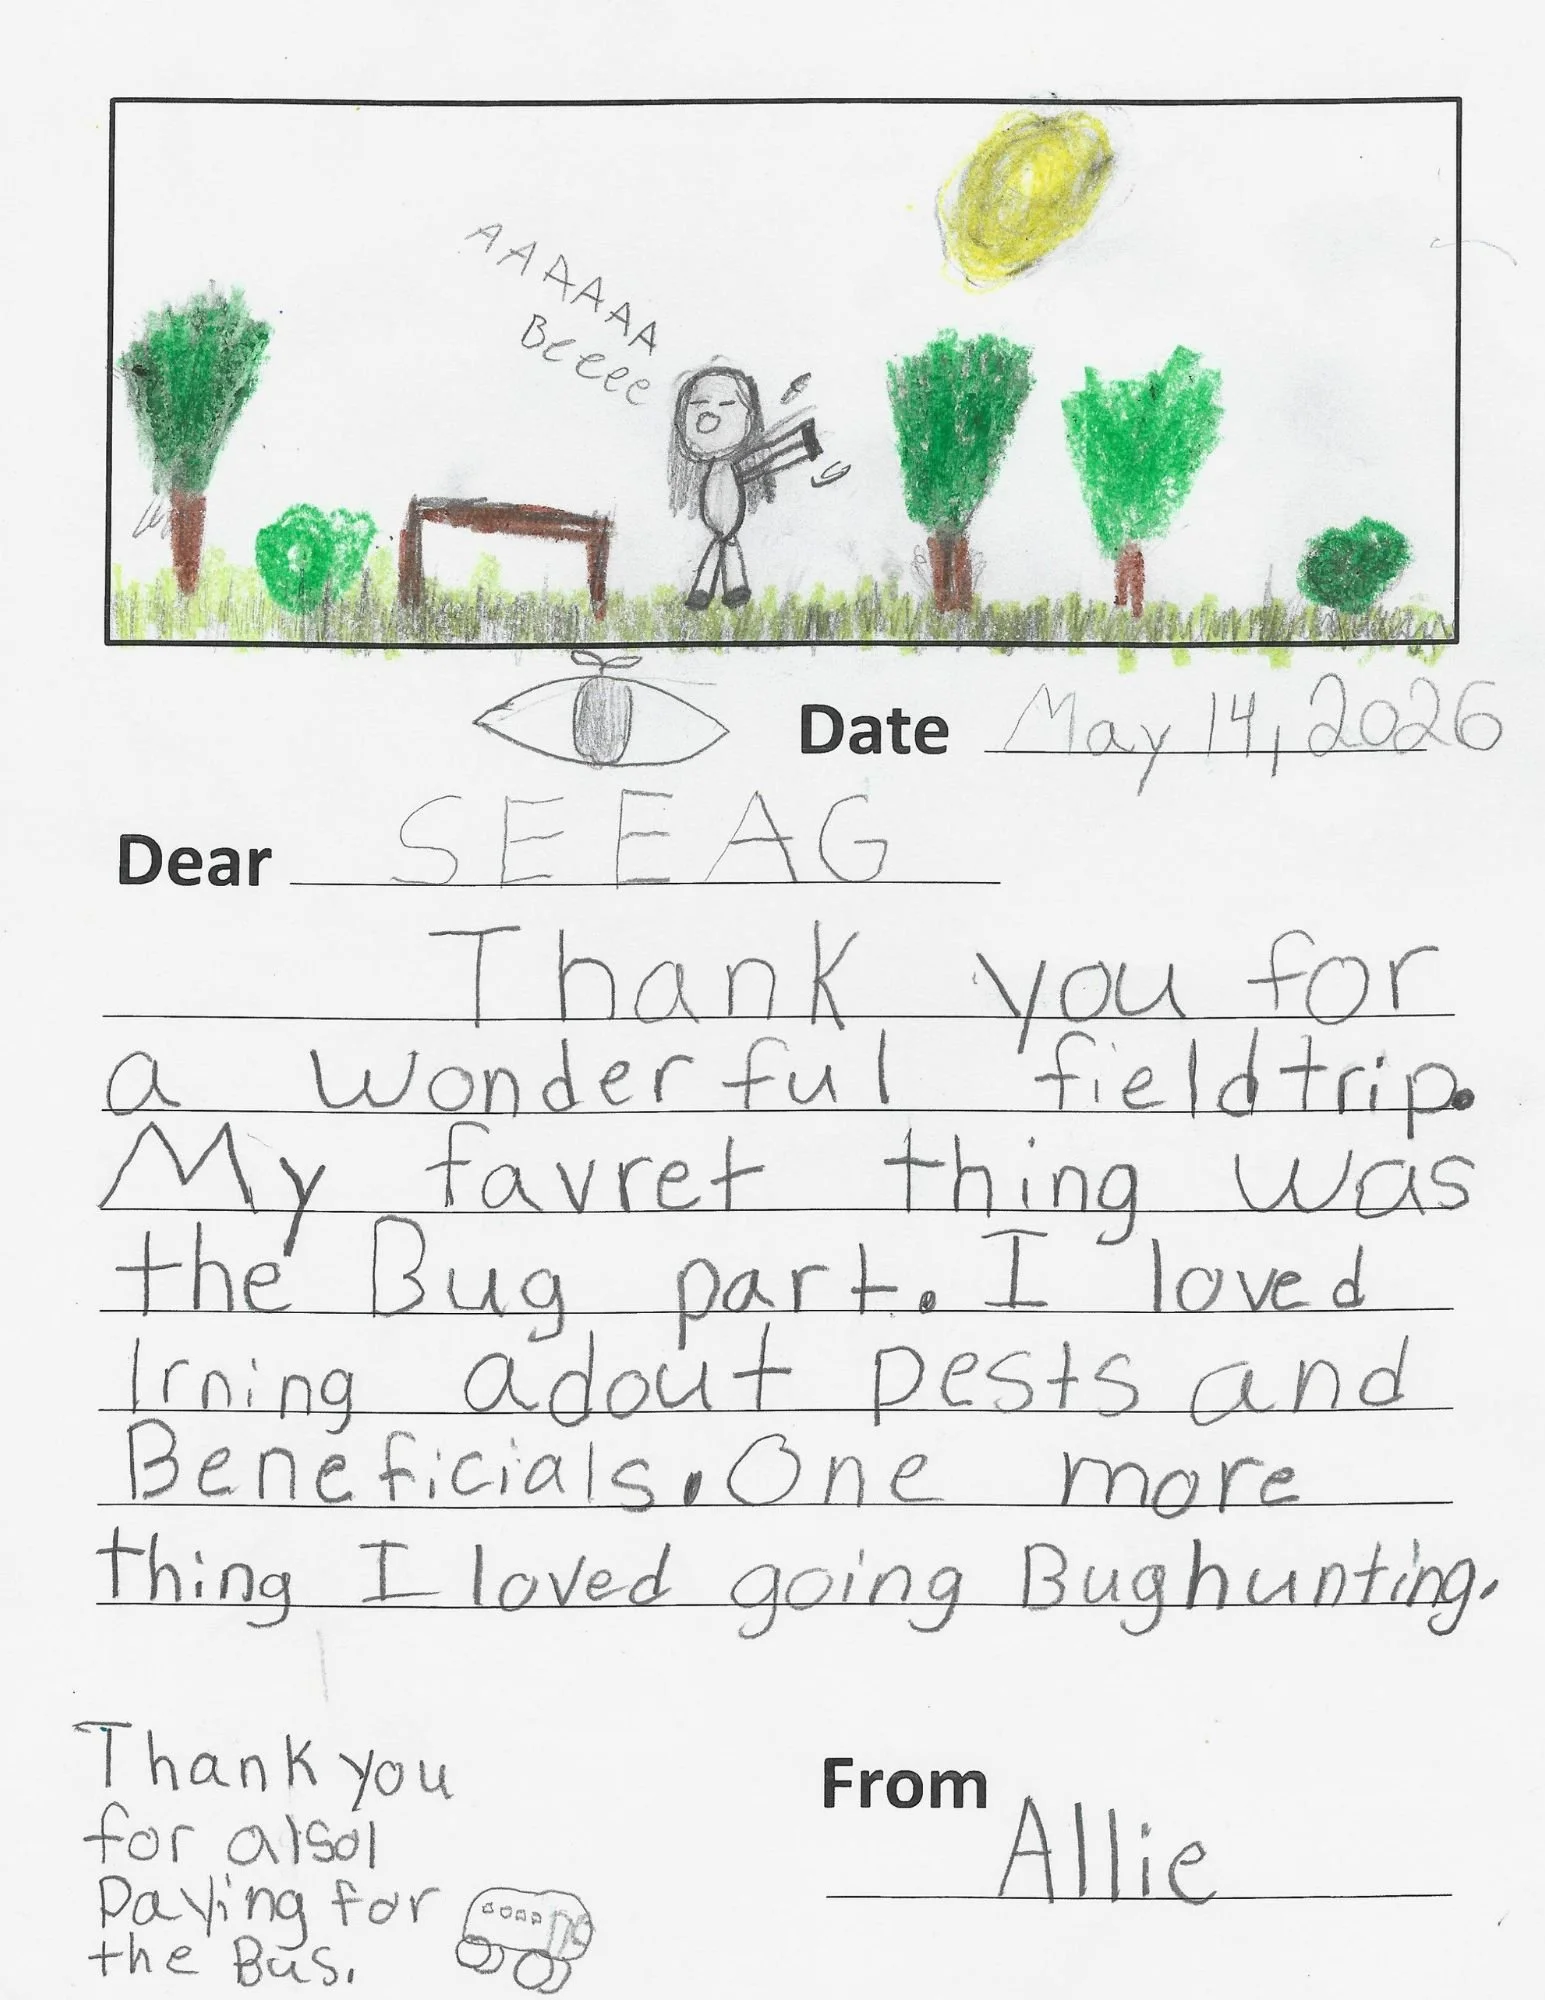 AAAAAAA
Beeee
Date May 14, 2026
Dear SEEAG
Thank you for
a wonderful fieldtrip.
My favret thing was
the Bug part. I loved
lrning adout pests and
Beneficials. One more
thing I loved going Bughunting.
Thank you
for alsol
Paying for
the Bus.
From
Allie